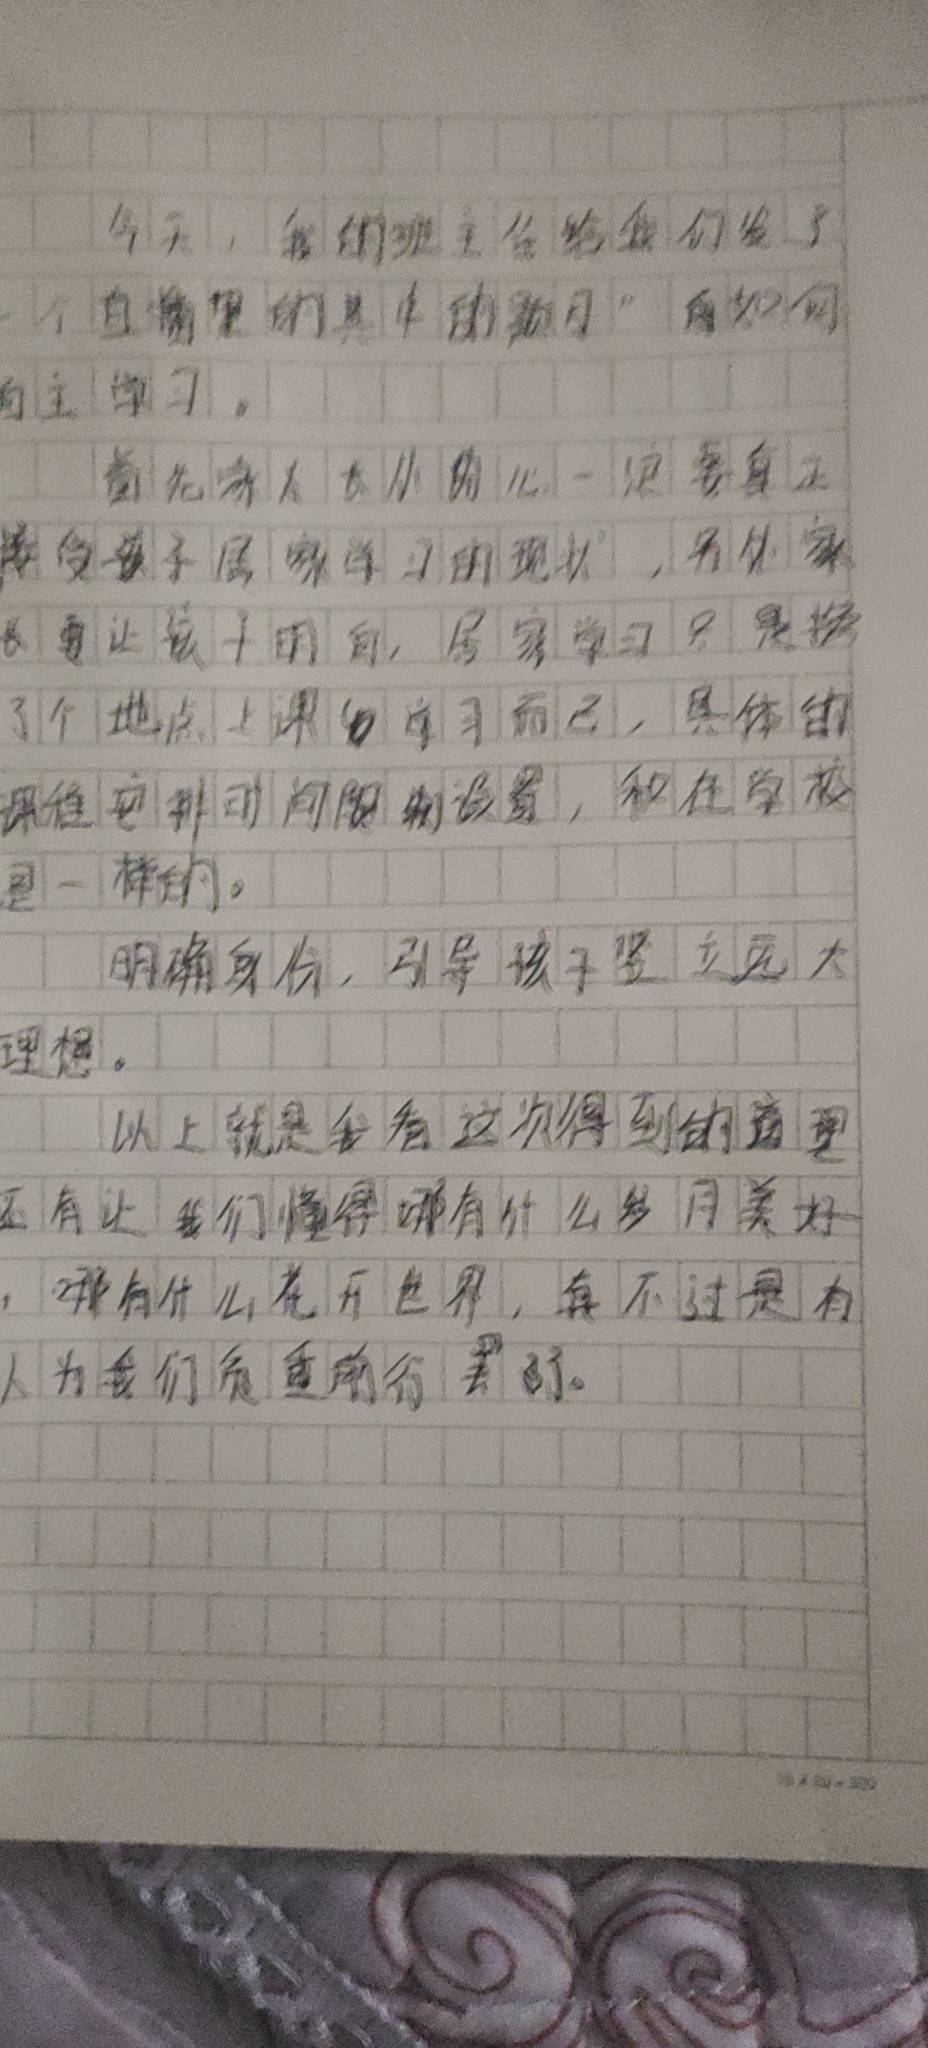 今天，我的班主任给我们发了
一个直播里的其中的题目"自如何
自主学习。
首先家人大小的心一定要真正
接受孩子居家学习的现状，另外家
长要让孩子明白，居家学习只是换
了个地点上课学习而已，具体的
课程安排时间设置，和在学校
是一样的。
明确身份，引导孩子竖立远大
理想。
以上就是我看这次得到的道理
还有让我们懂得哪有什么岁月美好
，哪有什么花开世界，真不过是有
人为我们负重前行罢了。